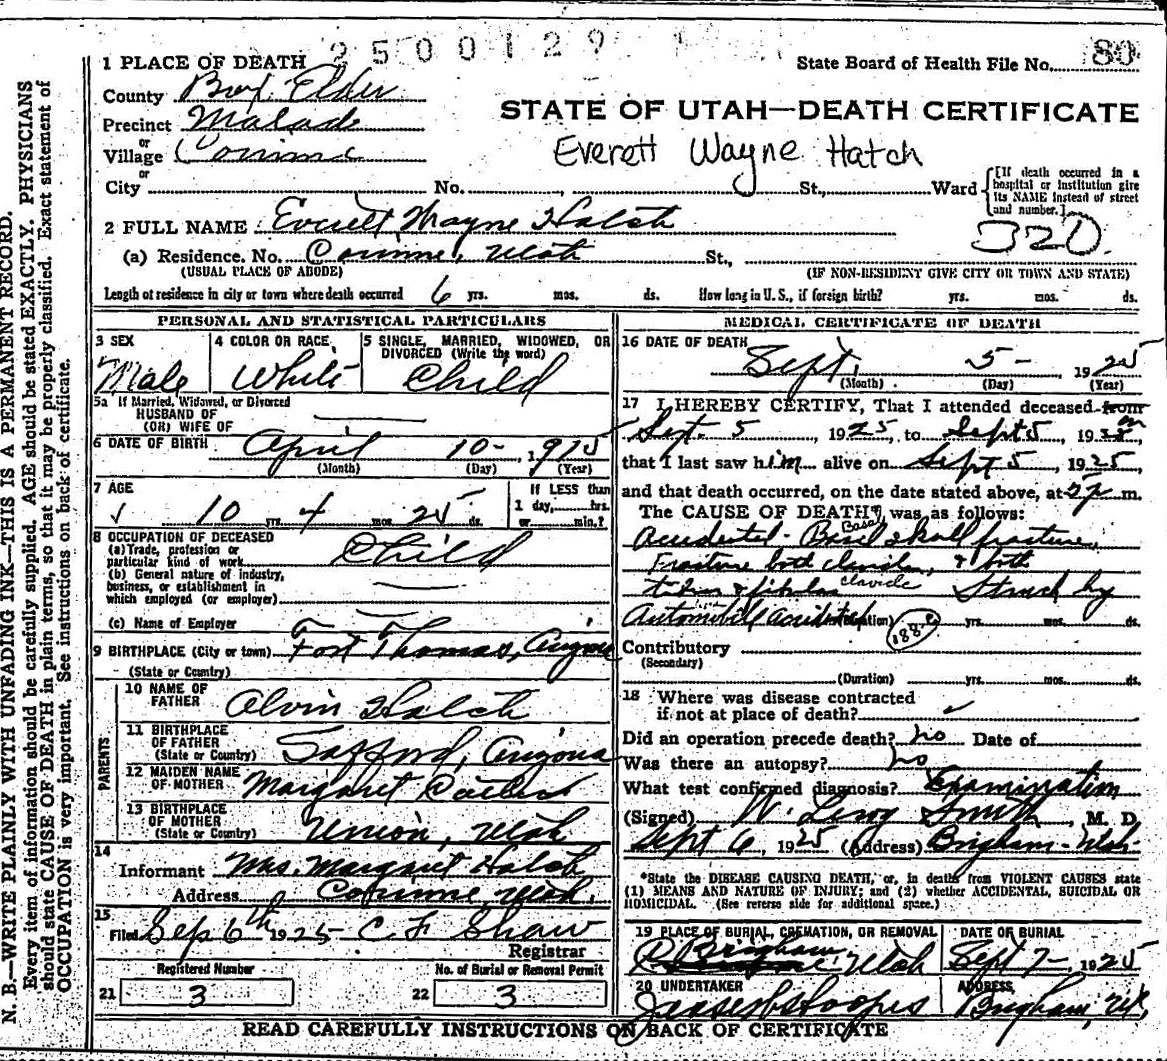 2500129
80
1 PLACE OF DEATH
State Board of Health File No.
County Box Elder
STATE OF UTAH—DEATH CERTIFICATE
Precinct Malad
or
Village Corinne
Everett Wayne Hatch
or
City No. , St., Ward
[If death occurred in a
hospital or institution give
its NAME instead of street
and number.]
2 FULL NAME Everett Wayne Hatch
32D.
(a) Residence. No. Corinne, Utah St.,
(USUAL PLACE OF ABODE) (IF NON-RESIDENT GIVE CITY OR TOWN AND STATE)
Length of residence in city or town where death occurred 6 yrs. mos. ds. How long in U. S., if foreign birth? yrs. mos. ds.
PERSONAL AND STATISTICAL PARTICULARS
3 SEX
Male
4 COLOR OR RACE
White
5 SINGLE, MARRIED, WIDOWED, OR
DIVORCED (Write the word)
Child
5a If Married, Widowed, or Divorced
HUSBAND OF
(OR) WIFE OF
6 DATE OF BIRTH April 10- 1915
(Month) (Day) (Year)
7 AGE
10 yrs. 4 mos. 25 ds.
If LESS than
1 day, hrs.
or min.?
8 OCCUPATION OF DECEASED
(a) Trade, profession or
particular kind of work Child
(b) General nature of industry,
business, or establishment in
which employed (or employer)
(c) Name of Employer
9 BIRTHPLACE (City or town) Fort Thomas, Arizona
(State or Country)
PARENTS
10 NAME OF
FATHER Alvin Hatch
11 BIRTHPLACE
OF FATHER
(State or Country) Safford, Arizona
12 MAIDEN NAME
OF MOTHER Margaret
13 BIRTHPLACE
OF MOTHER
(State or Country) Union, Utah
14
Informant Mrs. Margaret Hatch
Address Corinne Utah.
15
Filed Sep 6th 1925 C. F. Shaw
Registrar
Registered Number No. of Burial or Removal Permit
21 3 22 3
MEDICAL CERTIFICATE OF DEATH
16 DATE OF DEATH
Sept. 5- 1925
(Month) (Day) (Year)
17 I HEREBY CERTIFY, That I attended deceased from
Sept. 5, 1925, to Sept 5, 19
that I last saw him alive on Sept 5, 1925,
and that death occurred, on the date stated above, at m.
The CAUSE OF DEATH* was as follows:
Basal
Accidental - Basal skull fracture,
Fracture both & both
clavicle
tibia & fibulas Struck by
Automobile accident (Duration) yrs. mos. ds.
188
Contributory
(Secondary)
(Duration) yrs. mos. ds.
18 Where was disease contracted
if not at place of death?
Did an operation precede death? no Date of
Was there an autopsy? no
What test confirmed diagnosis? Examination
(Signed) W. Leroy Smith, M. D.
Sept 6, 1925 (Address) Brigham - Utah-
*State the DISEASE CAUSING DEATH, or, in deaths from VIOLENT CAUSES state
(1) MEANS AND NATURE OF INJURY; and (2) whether ACCIDENTAL, SUICIDAL OR
HOMICIDAL. (See reverse side for additional space.)
19 PLACE OF BURIAL, CREMATION, OR REMOVAL
Brigham, Utah
DATE OF BURIAL
Sept 7- 1925
20 UNDERTAKER
ADDRESS
Brigham, Ut.
READ CAREFULLY INSTRUCTIONS ON BACK OF CERTIFICATE
N. B.—WRITE PLAINLY WITH UNFADING INK—THIS IS A PERMANENT RECORD.
Every item of information should be carefully supplied. AGE should be stated EXACTLY. PHYSICIANS
should state CAUSE OF DEATH in plain terms, so that it may be properly classified. Exact statement of
OCCUPATION is very important. See instructions on back of certificate.